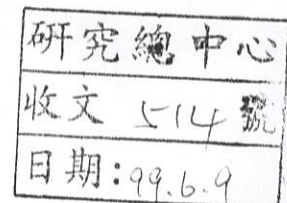 研究總中心
收文 514 號
日期:99.6.9